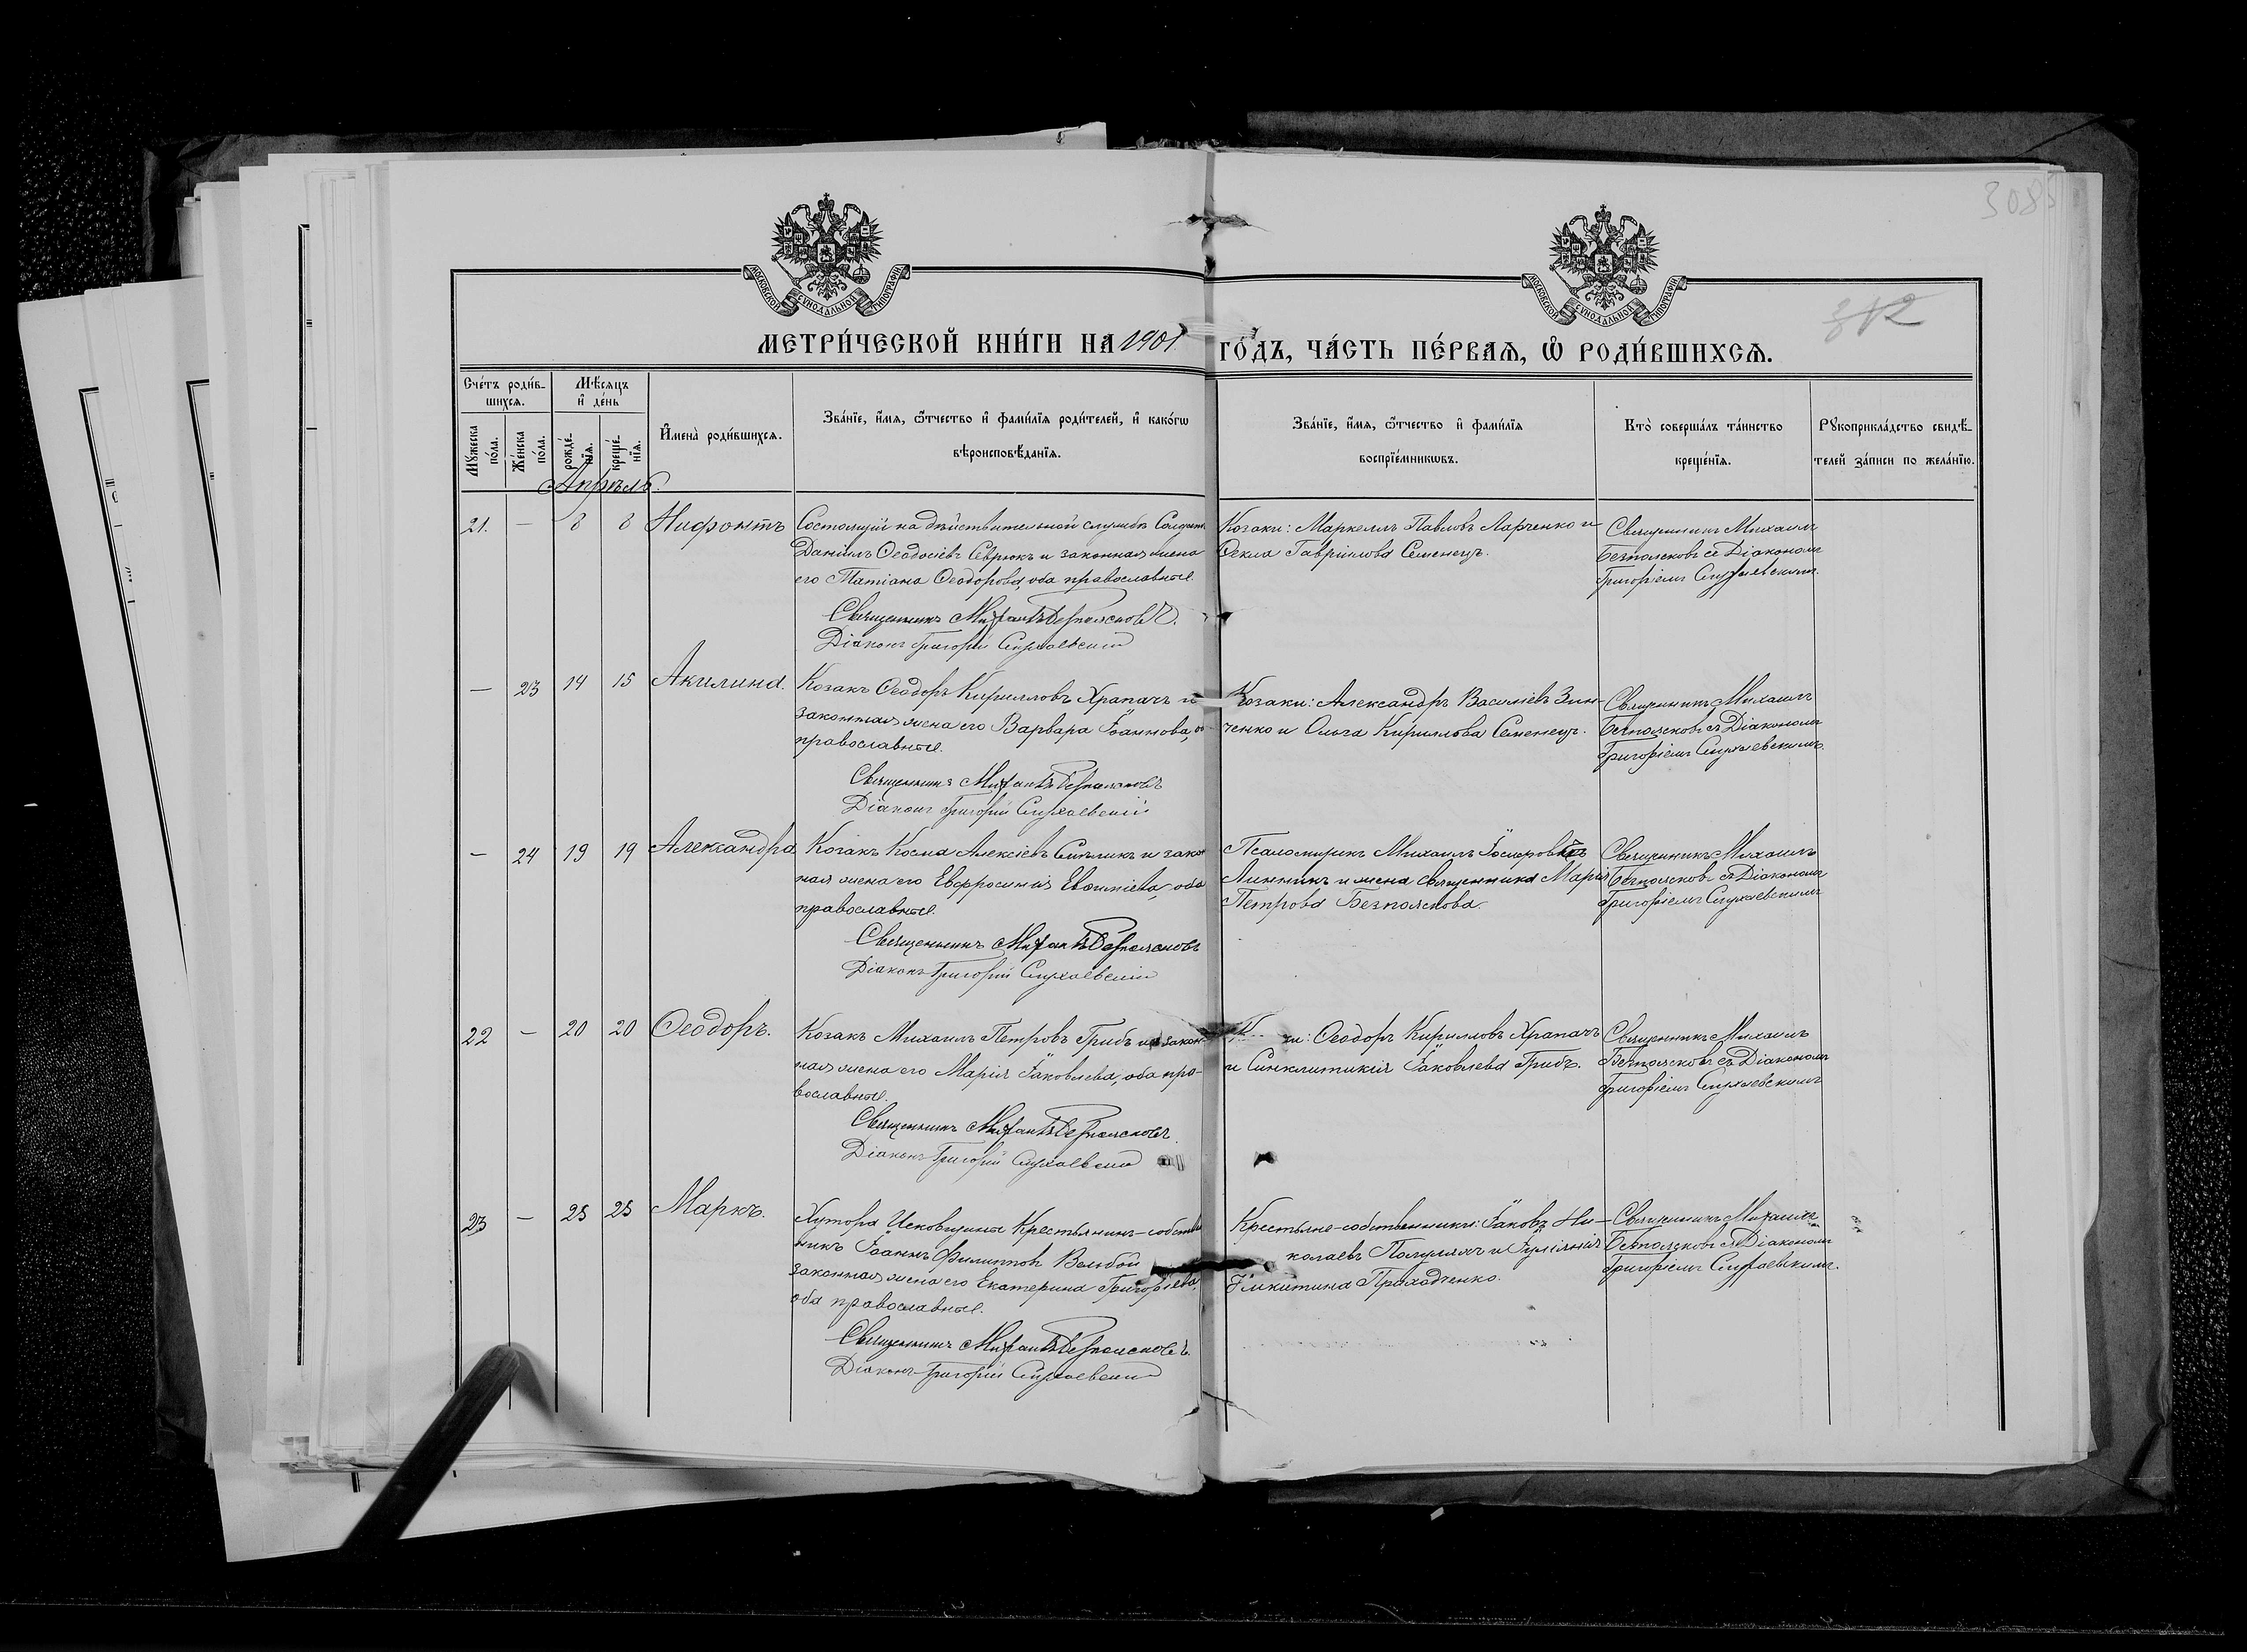 3085
312
МОСКОВСКОЙ СУНОДАЛЬНОЙ ТИПОГРАФИИ
МОСКОВСКОЙ СУНОДАЛЬНОЙ ТИПОГРАФИИ
МЕТРИ́ЧЕСКОЙ КНИ́ГИ НА 1901 ГО́ДЪ, ЧА́СТЬ ПЕ́РВАѦ, Ѡ҆ РОДИ́ВШИХСѦ.
Сче́тъ роди́в-
шихсѧ.
Мѣ́сѧцъ
и҆ де́нь
Мꙋ́жеска
по́ла.
Же́нска
по́ла.
рожде́-
нїѧ.
креще́-
нїѧ.
И҆мена̀ роди́вшихсѧ.
Зва́нїе, и҆́мѧ, ѻ҆́тчество и҆ фами́лїѧ роди́телей, и҆ како́гѡ
вѣроисповѣ́данїѧ.
Зва́нїе, и҆́мѧ, ѻ҆́тчество и҆ фами́лїѧ
воспрїе́мникѡвъ.
Кто̀ соверша́лъ та́инство
креще́нїѧ.
Рꙋкоприкла́дство свидѣ́-
телей за́писи по жела́нїю.
Апрѣль.
21. — 8 8 Нифонтъ
Состоящій на дѣйствительной службѣ Солдатъ
Даніилъ Ѳеодосіевъ Севрюкъ и законная жена
его Татіана Ѳеодорова, оба православные.
Священникъ Михаилъ Безпоясковъ.
Діаконъ Григорій Слухаевскій
Козаки: Маркеллъ Павловъ Ларченко и
Ѳекла Гавріилова Семенецъ.
Священникъ Михаилъ
Безпоясковъ съ Діакономъ
Григоріемъ Слухаевскимъ.
— 23 14 15 Акилина.
Козакъ Ѳеодоръ Кирилловъ Храпачъ и
законная жена его Варвара Іоаннова, об
православные.
Священникъ Михаилъ Безпоясковъ
Діаконъ Григорій Слухаевскій
Козаки: Александръ Василіевъ Зин-
ченко и Ольга Кириллова Семенецъ.
Священникъ Михаилъ
Безпоясковъ съ Діакономъ
Григоріемъ Слухаевскимъ.
— 24 19 19 Александра
Козакъ Косма Алексіевъ и закон
ная жена его Евфросинія Евѳиміева, оба
православные.
Священникъ Михаилъ Безпоясковъ
Діаконъ Григорій Слухаевскій
Псаломщикъ Михаилъ Іосифовъ
Линникъ и жена священника Марія
Петрова Безпояскова.
Священникъ Михаилъ
Безпоясковъ съ Діакономъ
Григоріемъ Слухаевскимъ
22 — 20 20 Ѳеодоръ.
Козакъ Михаилъ Петровъ Грибъ и закон-
ная жена его Марія Іаковлева, оба пра-
вославные.
Священникъ Михаилъ Безпоясковъ
Діаконъ Григорій Слухаевскій
Ѳеодоръ Кирилловъ Храпачъ
и Синклитикія Іаковлева Грибъ.
Священникъ Михаилъ
Безпоясковъ съ Діакономъ
Григоріемъ Слухаевскимъ
23 — 25 25 Маркъ.
Хутора Крестьянинъ-собствен
никъ Іоаннъ Филипповъ
законная жена его Екатерина Григоріева,
оба православные.
Священникъ Михаилъ Безпоясковъ.
Діаконъ Григорій Слухаевскій
Крестьяне-собственники: Іаковъ Ни-
колаевъ и Іуліанія
Никитина Проходченко.
Священникъ Михаилъ
Безпоясковъ съ Діакономъ
Григоріемъ Слухаевскимъ.